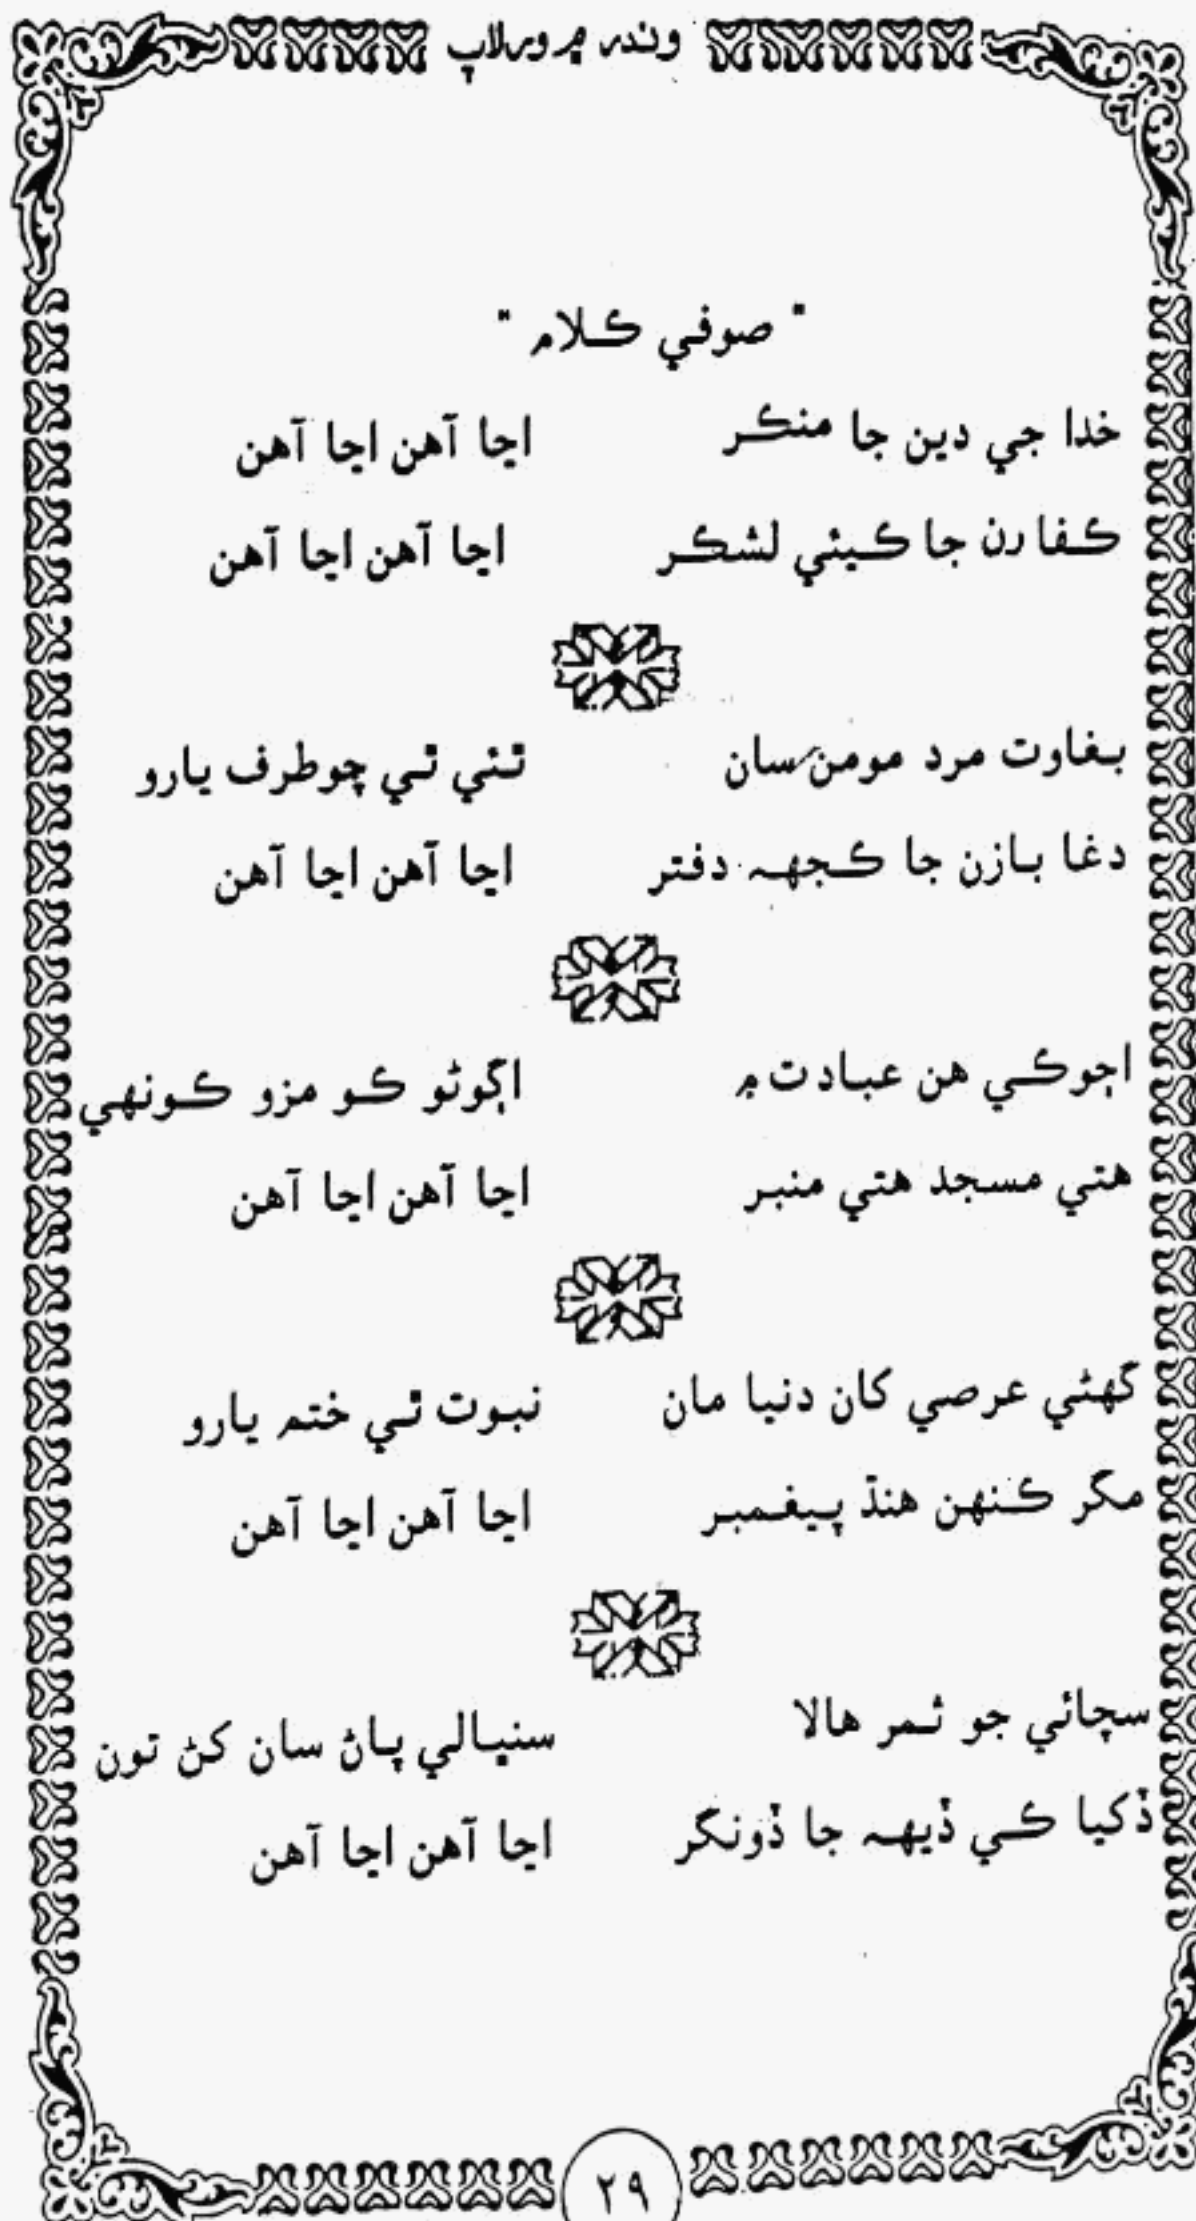 وندر ۾ ورلاپ
" صوفي ڪلام "
خدا جي دين جا منڪر اڃا آهن اڃا آهن
ڪفارن جا ڪيئي لشڪر اڃا آهن اڃا آهن
بغاوت مرد مومن سان ٿئي ٿي چوطرف يارو
دغا بازن جا ڪجهہ دفتر اڃا آهن اڃا آهن
اڄوڪي هن عبادت ۾ اڳوڻو ڪو مزو ڪونهي
هتي مسجد هتي منبر اڃا آهن اڃا آهن
گهڻي عرصي کان دنيا مان نبوت ٿي ختم يارو
مگر ڪنهن هنڌ پيغمبر اڃا آهن اڃا آهن
سچائي جو ثمر هالا سنڀالي پاڻ سان کڻ تون
ڏکيا ڪي ڏيهہ جا ڏونگر اڃا آهن اڃا آهن
۲۹